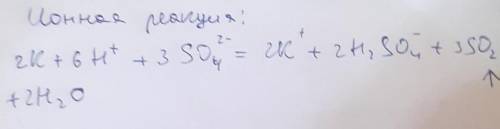 Ионная реакция:
2K + 6H⁺ + 3SO₄²⁻ = 2K⁺ + 2H₂SO₄⁻ + 3SO₂↑
+2H₂O